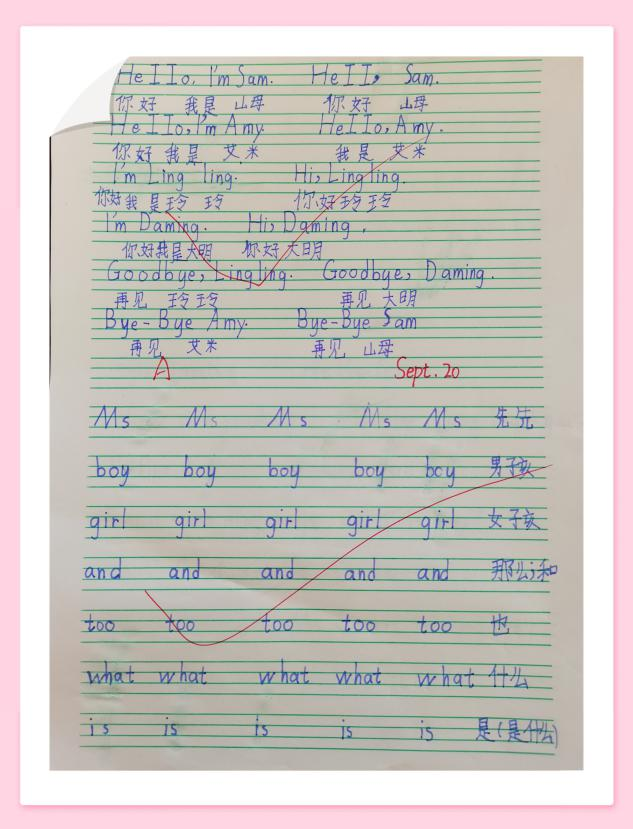 HeIIo, I'm Sam. HeII, Sam.
你好 我是 山母 你好 山母
HeIIo, I'm Amy. HeIIo, Amy.
你好 我是 艾米 我是 艾米
I'm Ling ling. Hi, Lingling.
你好 我是 玲 玲 你好 玲玲
I'm Daming. Hi, Daming.
你好我是大明 你好 大明
Goodbye, Lingling. Goodbye, Daming.
再见 玲玲 再见 大明
Bye-Bye Amy. Bye-Bye Sam
再见 艾米 再见 山母
A Sept. 20
Ms Ms Ms Ms Ms 先先
boy boy boy boy boy 男子孩
girl girl girl girl girl 女子孩
and and and and and 那么;和
too too too too too 也
what what what what what 什么
is is is is is 是(是什么)